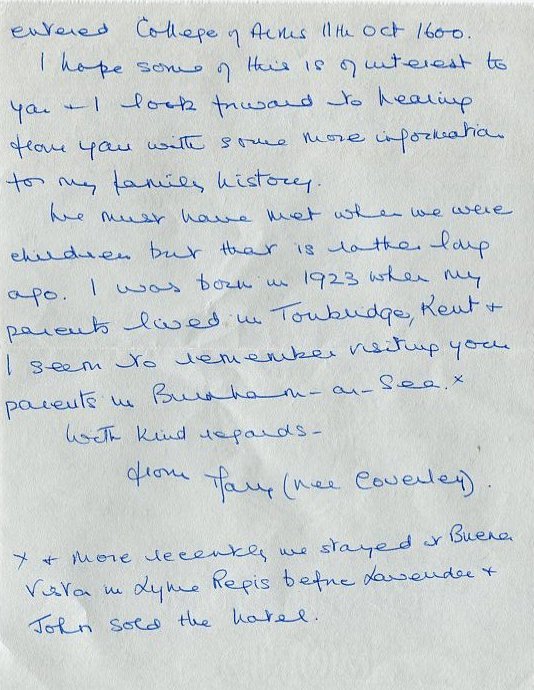 entered College of Arms 11th Oct 1600.
I hope some of this is of interest to
you + I look forward to hearing
from you with some more information
for my family history.
We must have met when we were
children but that is rather long
ago. I was born in 1923 when my
parents lived in Tonbridge, Kent +
I seem to remember visiting your
parents in Burnham-on-Sea.*
With kind regards -
from (nee Coverley).
* + more recently we stayed at Buena
Vista in Lyme Regis before Lavender +
John sold the hotel.